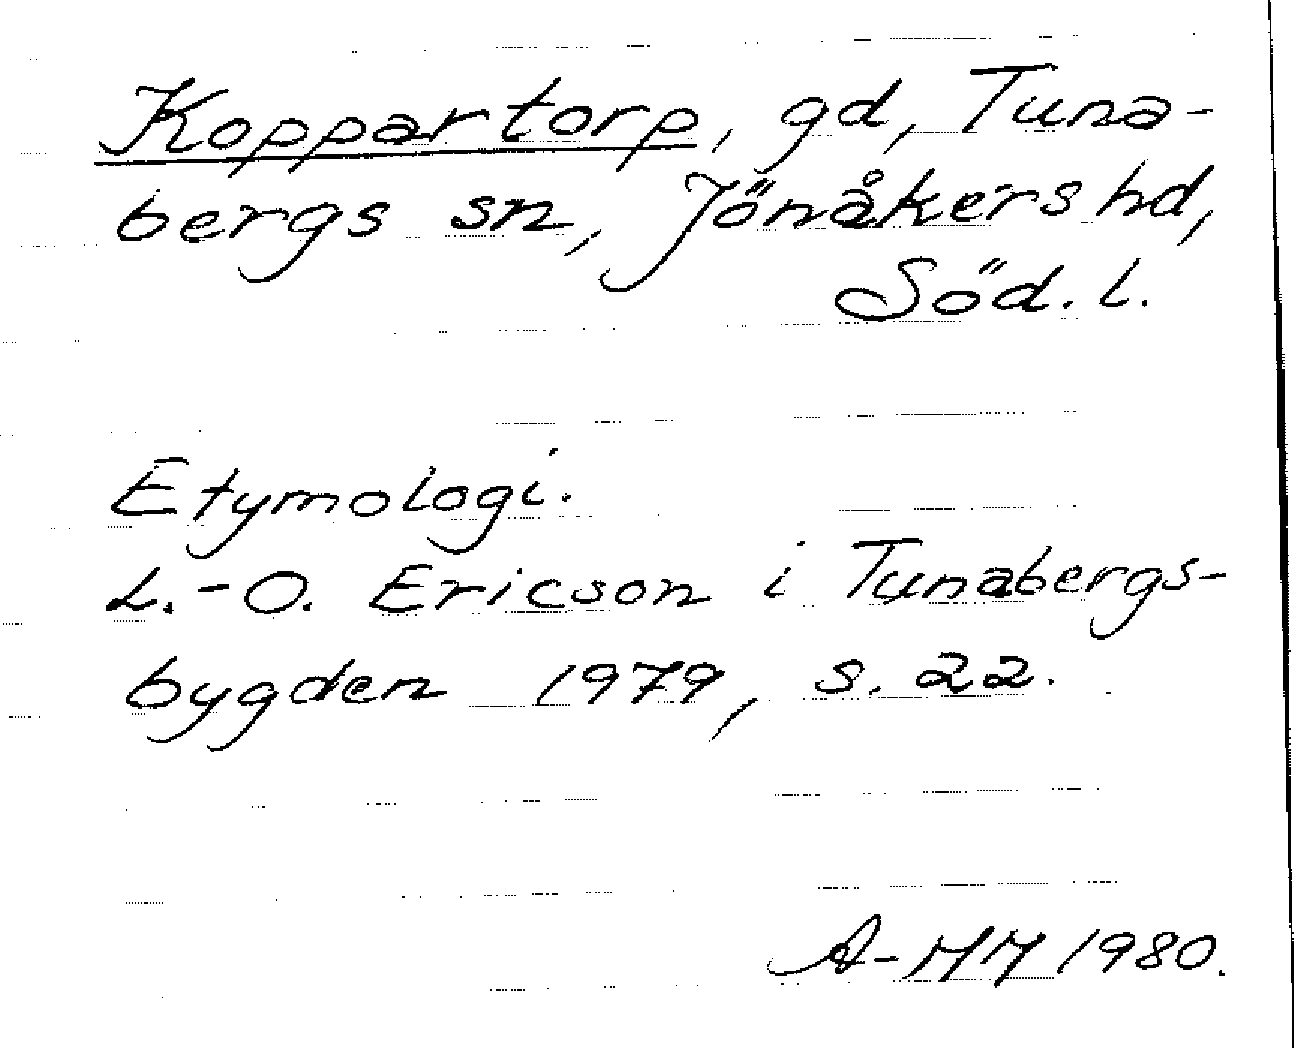 Koppartorp, gd, Tuna-
bergs sn, Jönåkers hd,
Söd. l.
Etymologi.
L.-O. Ericson i Tunabergs-
bygden 1979, s. 22.
A-MM 1980.